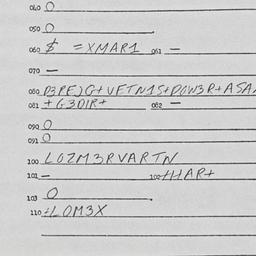 040 O
050 O
060 $ =XMAR1 061 —
070 —
080 P3RE)G+VETN1S+POW3R+ASA
081 +G3D1R+ 082 —
090 O
091 O
100 LOZM3RVARTN
101 — 102 +HAR+
103 O
110 +LOM3X